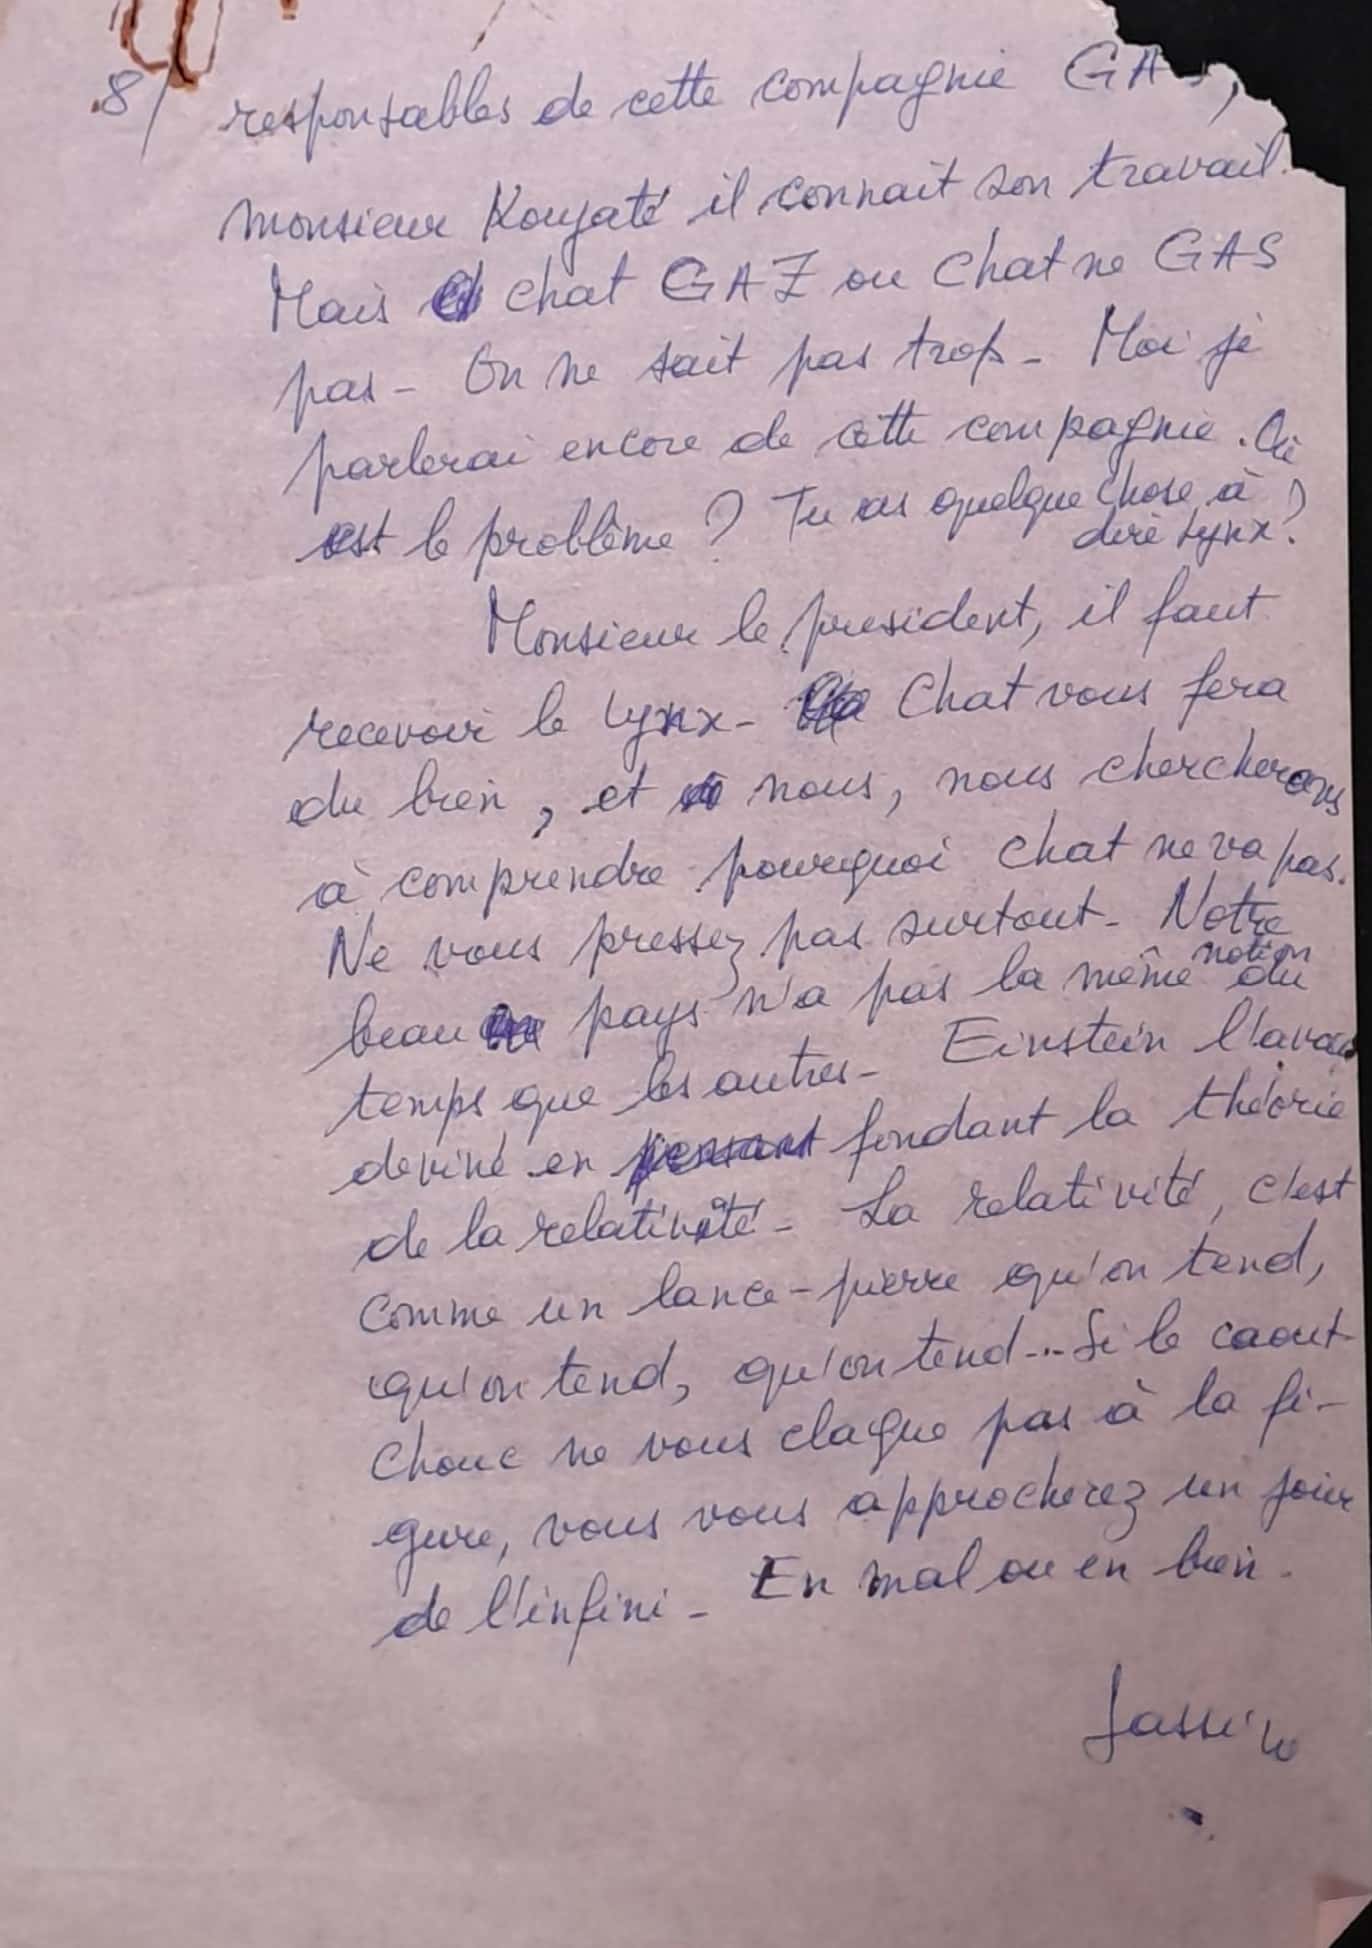 8/ responsables de cette compagnie GAS,
monsieur Kouyaté il connait son travail.
Mais chat GAZ ou chat ne GAS
pas - On ne sait pas trop - Moi je
parlerai encore de cette compagnie. Où
est le problème ? Tu as quelque chose à
dire Lynx ?
Monsieur le président, il faut
recevoir le Lynx - Chat vous fera
du bien, et nous, nous chercherons
à comprendre pourquoi chat ne va pas.
Ne vous pressez pas surtout - Notre
beau pays n'a pas la même notion du
temps que les autres - Einstein l'avait
deviné en pensant fondant la théorie
de la relativité - La relativité, c'est
comme un lance-pierre qu'on tend,
qu'on tend, qu'on tend... Si le caout-
chouc ne vous claque pas à la fi-
gure, vous vous approcherez un jour
de l'infini - En mal ou en bien.